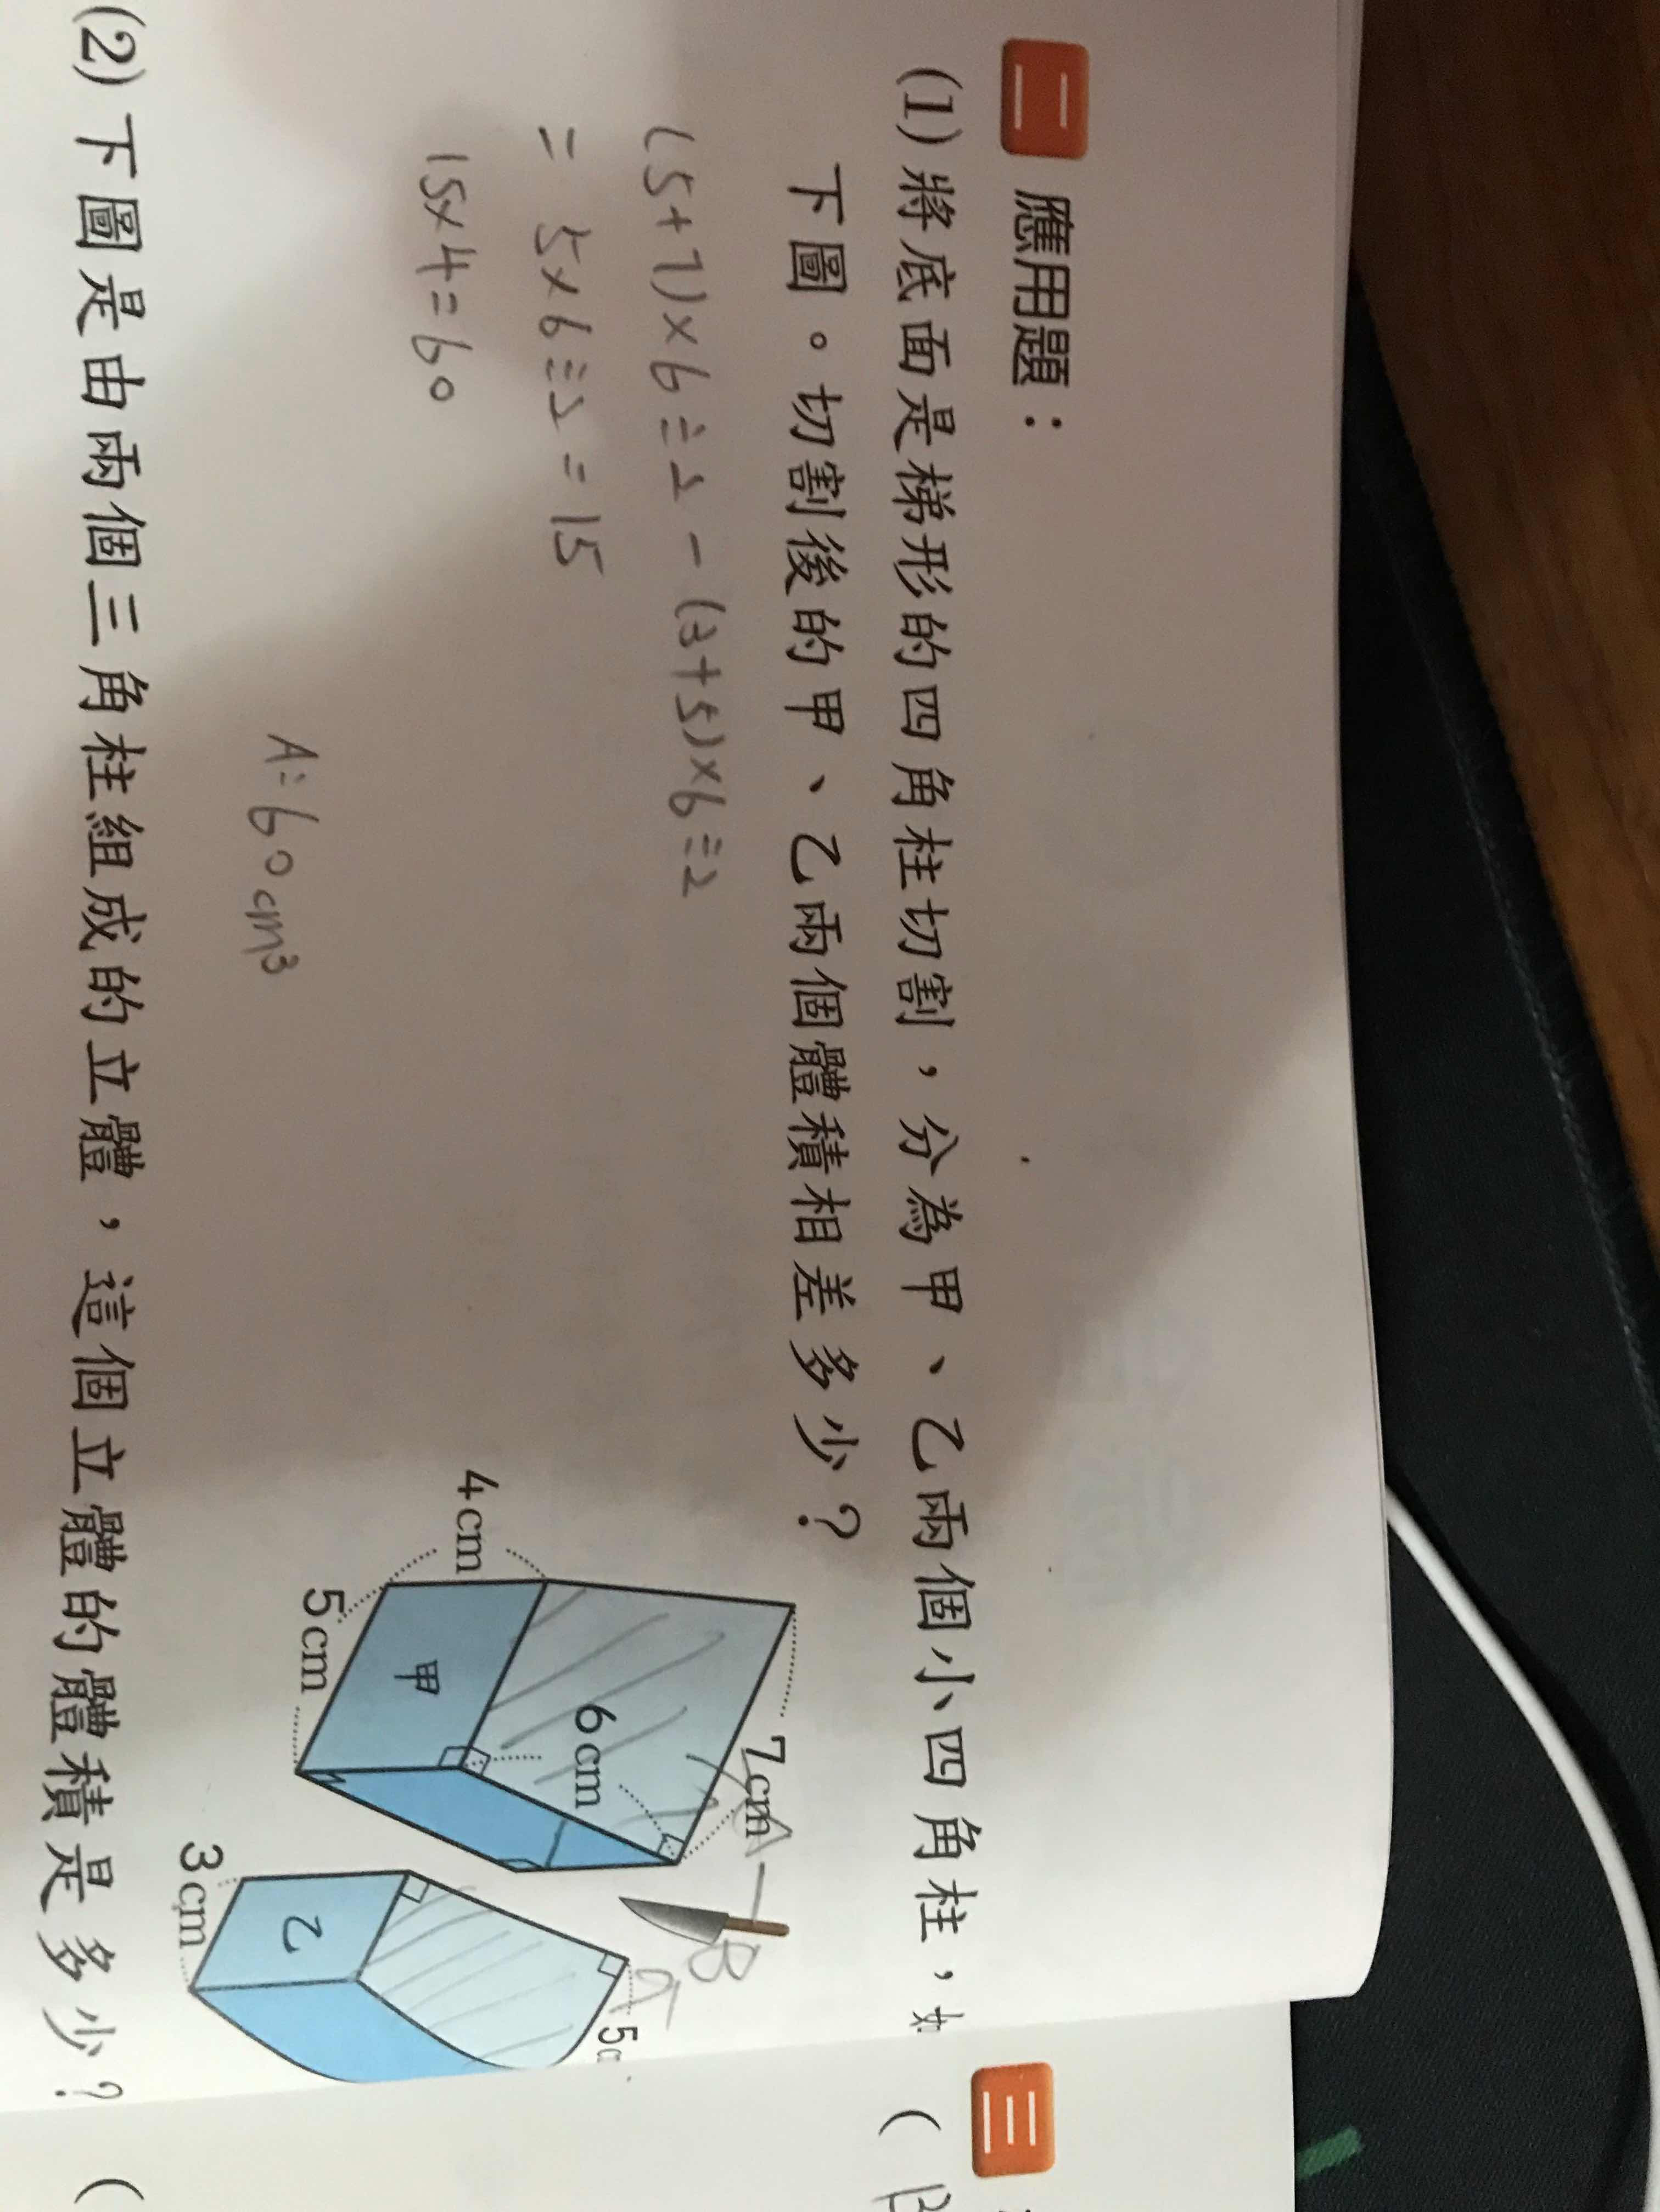 二 應用題：
(1) 將底面是梯形的四角柱切割，分為甲、乙兩個小四角柱，如
下圖。切割後的甲、乙兩個體積相差多少？
(5+7)×6÷2-(3+5)×6÷2
= 5×6÷2=15
15×4=60
A:60cm³
7cm
6cm
4cm
甲
5cm
B
5c
乙
3cm
(2) 下圖是由兩個三角柱組成的立體，這個立體的體積是多少？
三
(
(